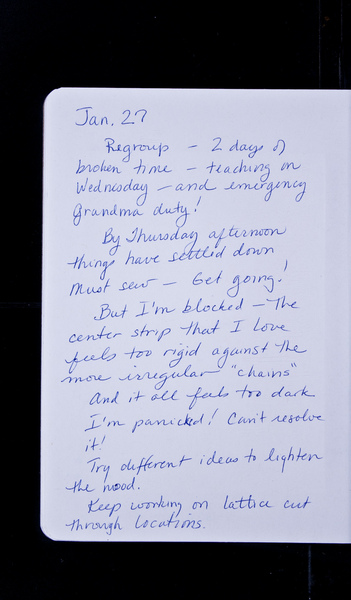 Jan. 27
Regroup — 2 days of
broken time — teaching on
Wednesday — and emergency
Grandma duty!
By Thursday afternoon
things have settled down
Must sew — Get going!
But I'm blocked — The
center strip that I love
feels too rigid against the
more irregular "chains"
And it all feels too dark
I'm panicked! Can't resolve
it!
Try different ideas to lighten
the mood.
Keep working on lattice cut
through locations.